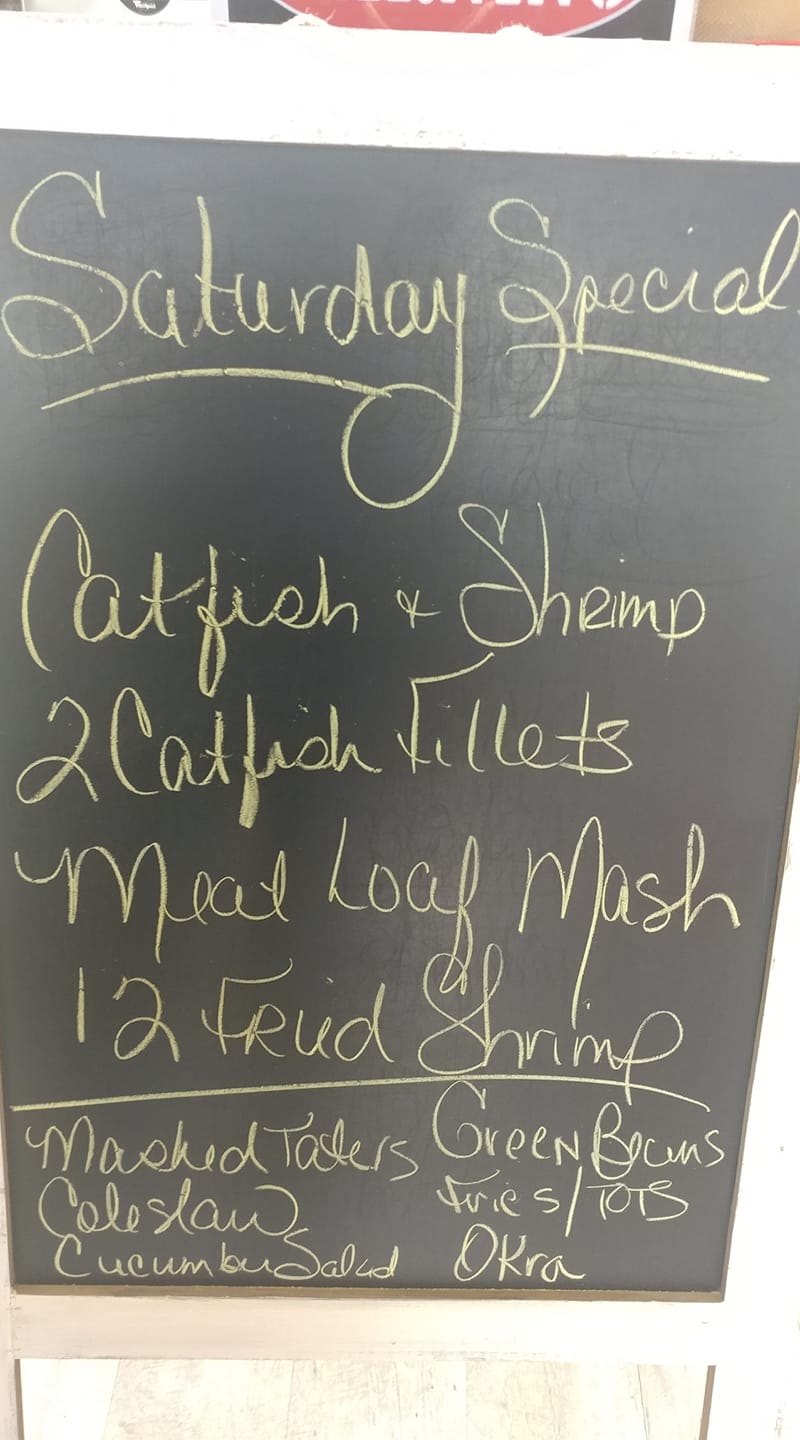 Saturday Special
Catfish & Shrimp
2 Catfish Fillets
Meat Loaf Mash
12 Fried Shrimp
Mashed Taters Green Beans
Coleslaw Fries/TOTS
Cucumber Salad Okra